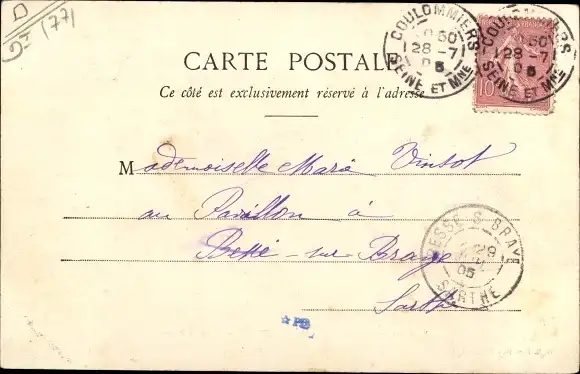 (77)
COULOMMIERS
50
28 -7
05
SEINE ET MNE
COULOMMIERS
50
28 -7
05
SEINE ET MNE
10
CARTE POSTALE
Ce côté est exclusivement réservé à l'adresse
Mademoiselle Maria Vintot
au Pavillon à
Bessé-sur-Braye
Sarthe
BESSE S BRAYE
29
05
SARTHE